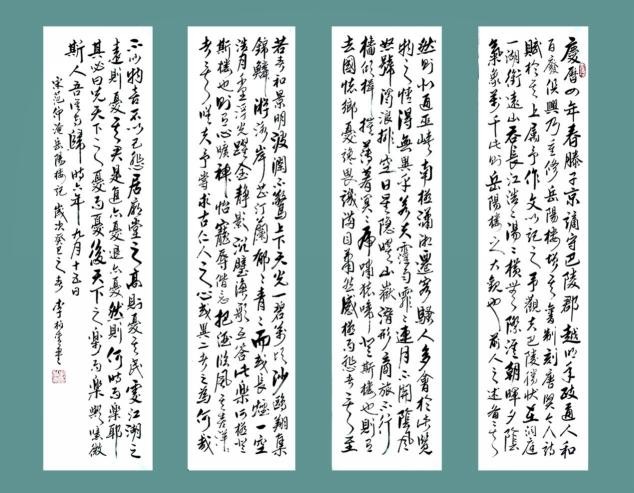 慶曆四年春滕子京謫守巴陵郡越明年政通人和
百廢俱興乃重修岳陽樓增其舊制刻唐賢今人詩
賦於其上屬予作文以記之予觀夫巴陵勝狀在洞庭
一湖銜遠山吞長江浩浩湯湯橫無際涯朝暉夕陰
氣象萬千此則岳陽樓之大觀也前人之述備矣
然則北通巫峽南極瀟湘遷客騷人多會於此覽
物之情得無異乎若夫霪雨霏霏連月不開陰風
怒號濁浪排空日星隱曜山嶽潛形商旅不行
檣傾楫摧薄暮冥冥虎嘯猿啼登斯樓也則有
去國懷鄉憂讒畏譏滿目蕭然感極而悲者矣至
若春和景明波瀾不驚上下天光一碧萬頃沙鷗翔集
錦鱗游泳岸芷汀蘭郁郁青青而或長煙一空
浩月千里浮光躍金靜影沉璧漁歌互答此樂何極登
斯樓也則有心曠神怡寵辱偕忘把酒臨風其喜洋洋
者矣嗟夫予嘗求古仁人之心或異二者之為何哉
不以物喜不以己悲居廟堂之高則憂其民處江湖之
遠則憂其君是進亦憂退亦憂然則何時而樂耶
其必曰先天下之憂而憂後天下之樂而樂歟噫微
斯人吾誰與歸時六年九月十五日
宋范仲淹岳陽樓記 歲次癸巳之冬 李